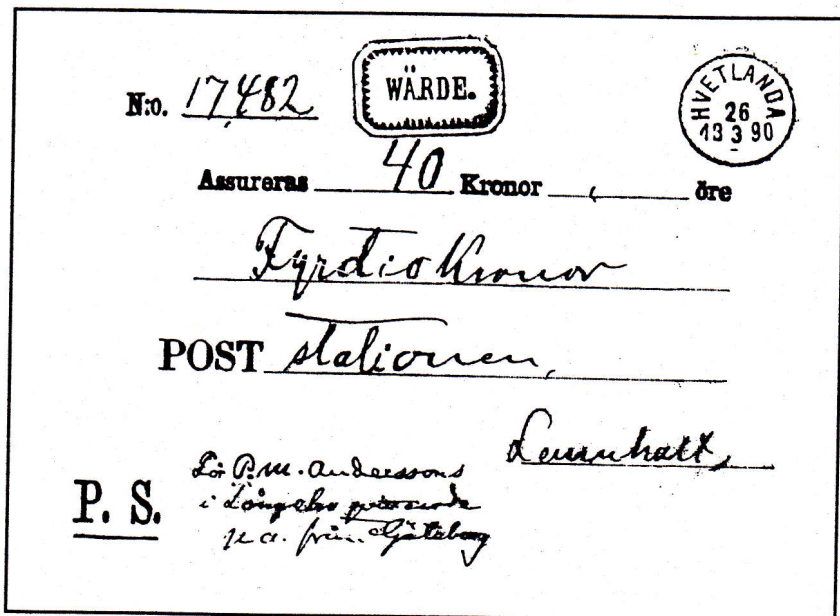 N:o. 17,482
WÄRDE.
HVETLANDA
26
13 3 90
Assureras 40 Kronor , öre
Fyrtio Kronor
POST stationen,
Lemnhult,
P. S.
För P. M. Anderssons
i
p. a. från Göteborg